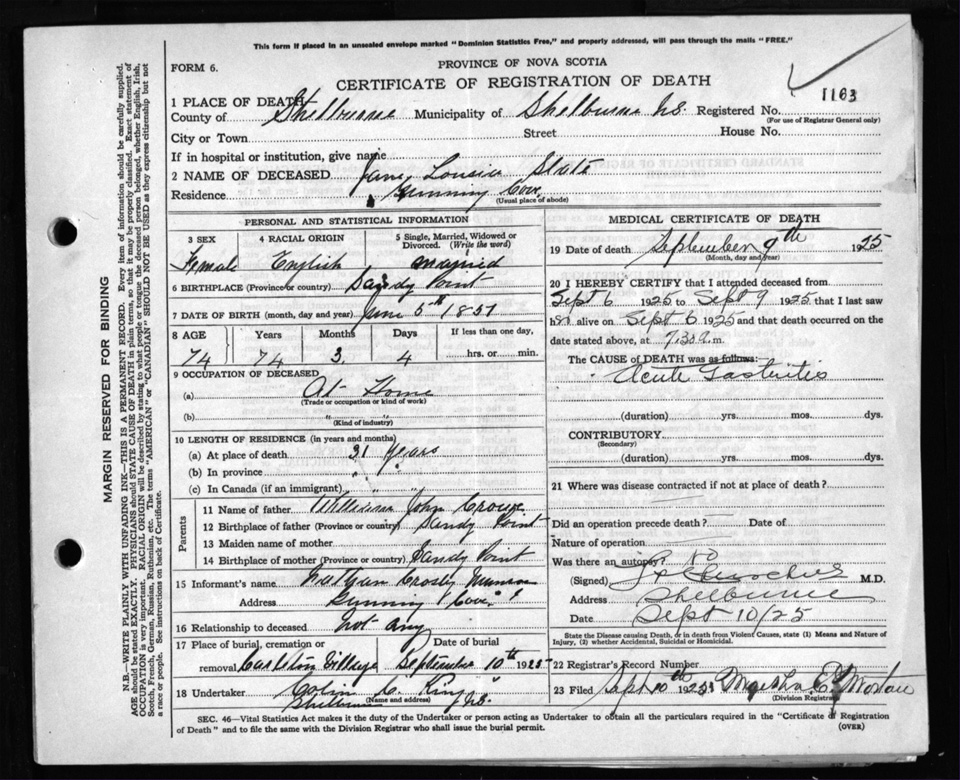 This form if placed in an unsealed envelope marked "Dominion Statistics Free," and properly addressed, will pass through the mails "FREE."
FORM 6.
PROVINCE OF NOVA SCOTIA
CERTIFICATE OF REGISTRATION OF DEATH
1163
1 PLACE OF DEATH
County of Shelburne Municipality of Shelburne N.S. Registered No.
(For use of Registrar General only)
City or Town Street House No.
If in hospital or institution, give name
2 NAME OF DECEASED Jane Lousia State
Residence Gunning Cove
(Usual place of abode)
PERSONAL AND STATISTICAL INFORMATION
3 SEX 4 RACIAL ORIGIN 5 Single, Married, Widowed or Divorced. (Write the word)
Female English married
6 BIRTHPLACE (Province or country) Sandy Point
7 DATE OF BIRTH (month, day and year) June 5th 1851
8 AGE Years Months Days If less than one day,
74 74 3 4 hrs. or min.
9 OCCUPATION OF DECEASED
(a) At Home
(Trade or occupation or kind of work)
(b) "
(Kind of industry)
10 LENGTH OF RESIDENCE (in years and months)
(a) At place of death 31 years
(b) In province " "
(c) In Canada (if an immigrant) " "
Parents
11 Name of father William John Crowe
12 Birthplace of father (Province or country) Sandy Point
13 Maiden name of mother
14 Birthplace of mother (Province or country) Sandy Point
15 Informant's name Nathan Crosby
Address Gunning Cove
16 Relationship to deceased not any
17 Place of burial, cremation or removal Date of burial
Carleton Village September 10th 1925
18 Undertaker Colin C. King
(Name and address)
Shelburne N.S.
MEDICAL CERTIFICATE OF DEATH
19 Date of death September 9th 1925
(Month, day and year)
20 I HEREBY CERTIFY that I attended deceased from
Sept 6 1925 to Sept 9 1925 that I last saw
h alive on Sept 6 1925 and that death occurred on the
date stated above, at 7.30 a.m.
The CAUSE of DEATH was as follows:
Acute Gastritis
(duration) yrs. mos. dys.
CONTRIBUTORY
(Secondary)
(duration) yrs. mos. dys.
21 Where was disease contracted if not at place of death?
Did an operation precede death? Date of
Nature of operation
Was there an autopsy? No
(Signed) M.D.
Address Shelburne
Date Sept 10/25
State the Disease causing Death, or in death from Violent Causes, state (1) Means and Nature of Injury, (2) whether Accidental, Suicidal or Homicidal.
22 Registrar's Record Number
23 Filed Sept 10th 1925
(Division Registrar)
SEC. 46—Vital Statistics Act makes it the duty of the Undertaker or person acting as Undertaker to obtain all the particulars required in the "Certificate of Registration
of Death" and to file the same with the Division Registrar who shall issue the burial permit. (OVER)
MARGIN RESERVED FOR BINDING
N.B.—WRITE PLAINLY, WITH UNFADING INK—THIS IS A PERMANENT RECORD. Every item of information should be carefully supplied.
AGE should be stated EXACTLY. PHYSICIANS should STATE CAUSE OF DEATH in plain terms, so that it may be properly classified. Exact statement of
OCCUPATION is very important. RACIAL ORIGIN will be described by stating to what people or tongue the deceased person belonged, whether English, Irish,
Scotch, French, German, Russian, Ruthenian, etc. The terms "AMERICAN" or "CANADIAN" SHOULD NOT BE USED as they express citizenship but not
a race or people. See instructions on back of Certificate.